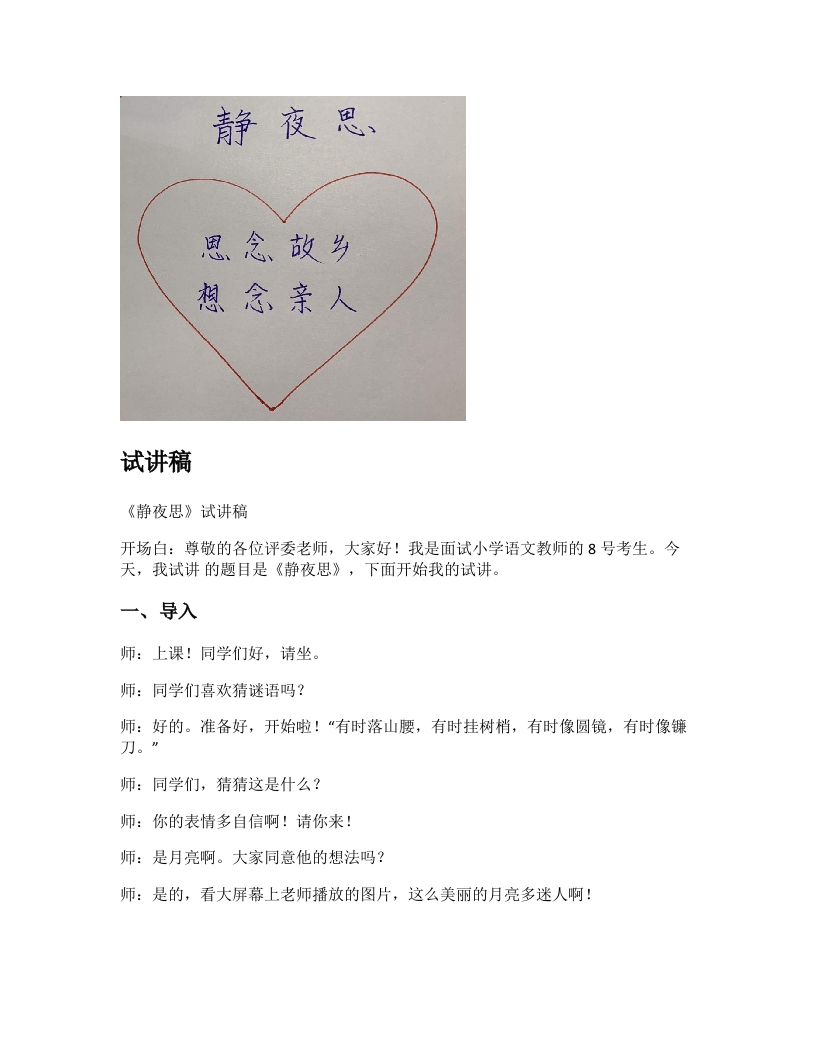 静夜思
思念故乡
想念亲人
试讲稿
《静夜思》试讲稿
开场白：尊敬的各位评委老师，大家好！我是面试小学语文教师的 8 号考生。今
天，我试讲 的题目是《静夜思》，下面开始我的试讲。
一、导入
师：上课！同学们好，请坐。
师：同学们喜欢猜谜语吗？
师：好的。准备好，开始啦！“有时落山腰，有时挂树梢，有时像圆镜，有时像镰
刀。”
师：同学们，猜猜这是什么？
师：你的表情多自信啊！请你来！
师：是月亮啊。大家同意他的想法吗？
师：是的，看大屏幕上老师播放的图片，这么美丽的月亮多迷人啊！